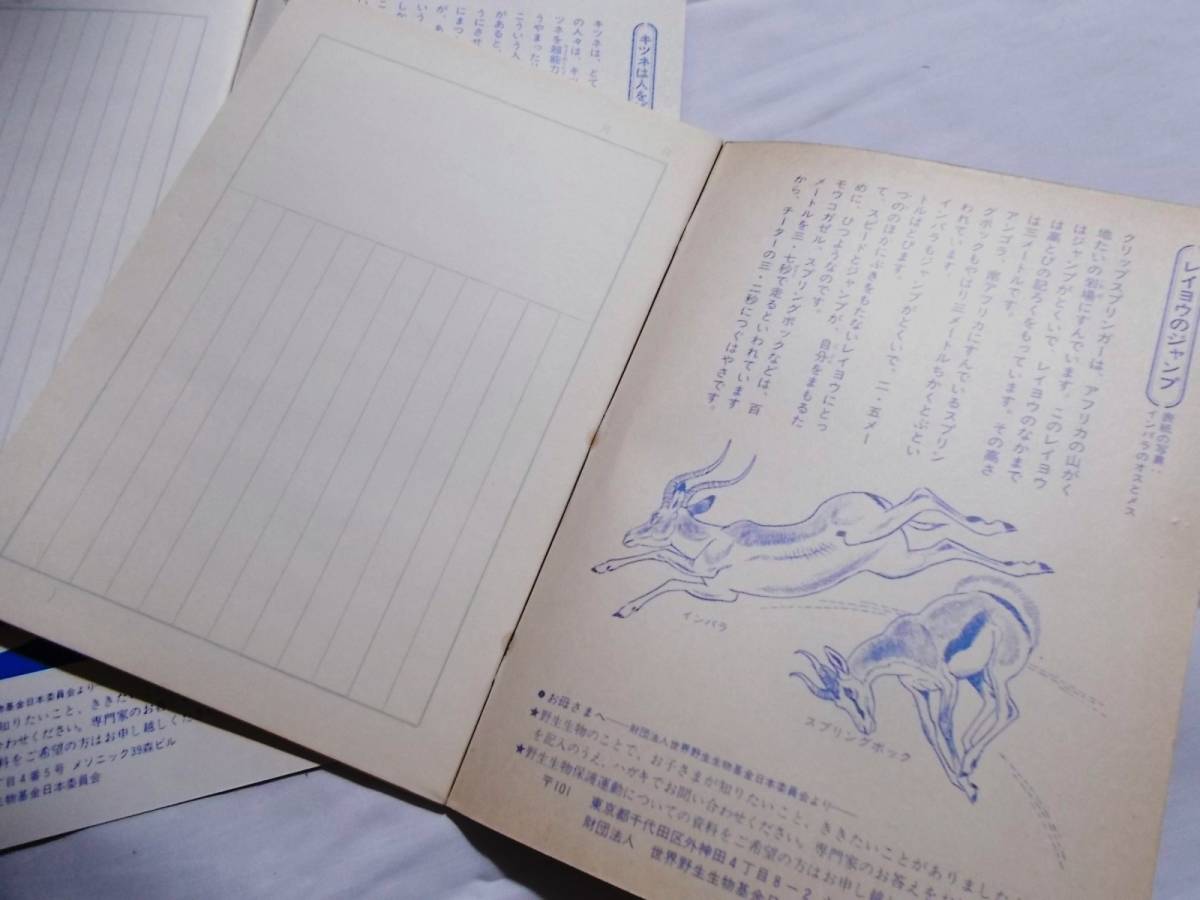 レイヨウのジャンプ
表紙の写真：
インパラのオスとメス
クリップスプリンガーは、アフリカの山がく
地たいの岩場にすんでいます。このレイヨウ
はジャンプがとくいで、レイヨウのなかまで
は高とびの記ろくをもっています。その高さ
は三メートルです。
アンゴラ、南アフリカにすんでいるスプリン
グボックもやはり三メートルちかくとぶとい
われています。
インパラもジャンプがとくいで、二・五メー
トルはとびます。
つののほかにぶきをもたないレイヨウにとっ
て、スピードとジャンプが、自分をまもるた
めに、ひつようなのです。
モウコガゼル、スプリングボックなどは、百
メートルを三・七秒で走るといわれています
から、チーターの三・二秒につぐはやさです。
インパラ
スプリングボック
●お母さまへ——財団法人世界野生生物基金日本委員会より——
★野生生物のことで、お子さまが知りたいこと、ききたいことがありましたら
を記入のうえ、ハガキでお問い合わせください。専門家のお答えを
★野生生物保護運動についての資料をご希望の方はお申し越し
〒101 東京都千代田区外神田4丁目8-2
財団法人 世界野生生物基金日
キツネは人を
キツネは、とて
の人々は、キ
ツネを超能力
うやまった
こういう人
があると、
うにさせ
にまつ
が、あ
いう
しか
物基金日本委員会より—
知りたいこと、ききた
合わせください。専門家のお
料をご希望の方はお申し越しくだ
丁目4番5号 メソニック39森ビル
生物基金日本委員会